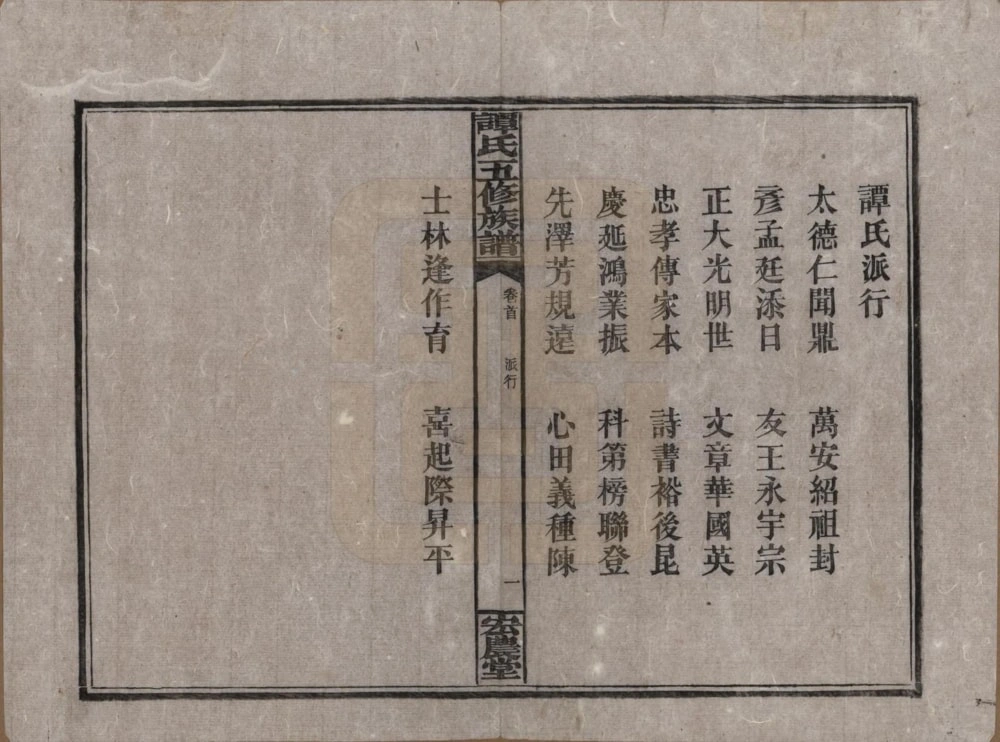 譚氏派行
太德仁聞鼎　萬安紹祖封
彥孟廷添日　友王永宇宗
正大光明世　文章華國英
忠孝傳家本　詩書裕後昆
慶延鴻業振　科第榜聯登
先澤芳規遠　心田義種陳
譚氏五修族譜　卷首　派行　一　宏農堂
士林逢作育　喜起際昇平